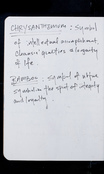 CHRYSANTHEMUM : symbol
of intellectual accomplishment
Cleansic qualities & longevity
of life

BAMBOO : symbol of virtue
symbol in the spirit of integrity
and loyalty